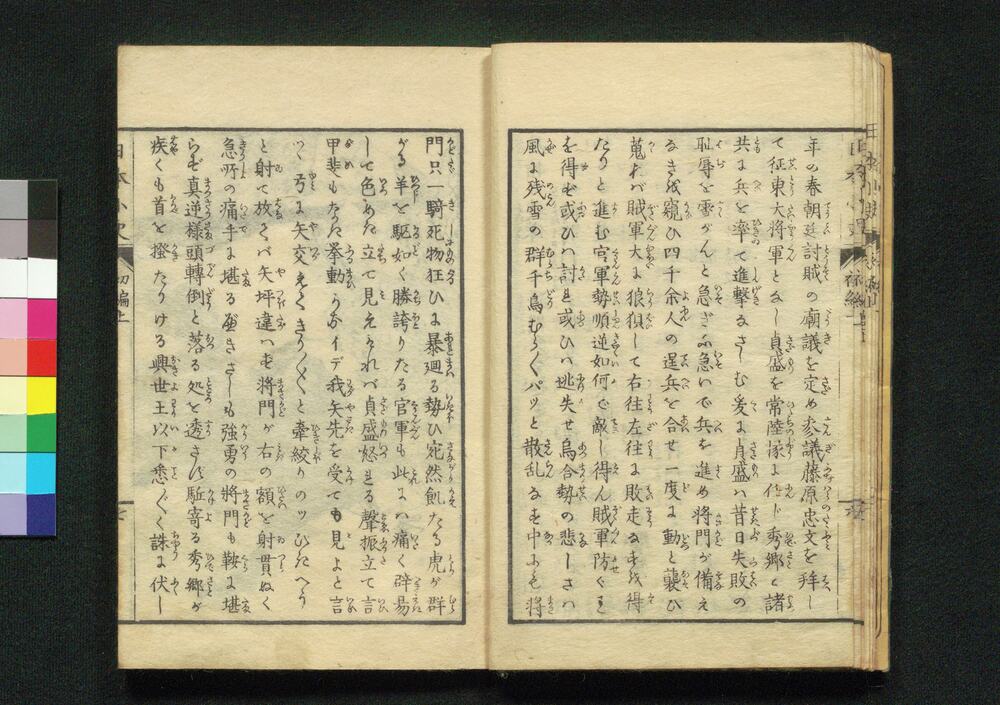 年の春朝廷討賊の廟議を定め参議藤原忠文を拝し
て征東大将軍となし貞盛を常陸掾に任じ秀郷と諸
共に兵を率て進撃なさしむ爰に貞盛ハ昔日失敗の
恥辱を雪がんと急ぎに急いで兵を進め将門が備え
なきを窺ひ四千余人の逞兵を合せ一度に動と襲ひ
蒐れバ賊軍大に狼狽して右往左往に敗走なすを得
たりと進む官軍勢順逆如何で敵し得ん賊軍防ぐに
を得ず或ひハ討れ或ひハ逃失せ烏合勢の悲しさハ
風に残雪の群千鳥むら〱パッと散乱なす中にも将
門只一騎死物狂ひに暴廻る勢ひ宛然飢たる虎が群
がる羊を駆如く勝誇りたる官軍も此にハ痛く辟易
して色めき立て見えければ貞盛怒れる聲振立て言
甲斐もなき挙動かなイデ我矢先を受ても見よと言
つゝ弓に矢交えきり〱と牽絞りのッひたへう
と射て放てバ矢坪違ハず将門が右の額を射貫ぬく
急所の痛手に堪るべきさしも強勇の将門も鞍に堪
らず真逆様頭轉倒と落る処を透さず駈寄る秀郷が
疾くも首を掻たりける興世王以下悉〱く誅に伏し
日本小史
初編上